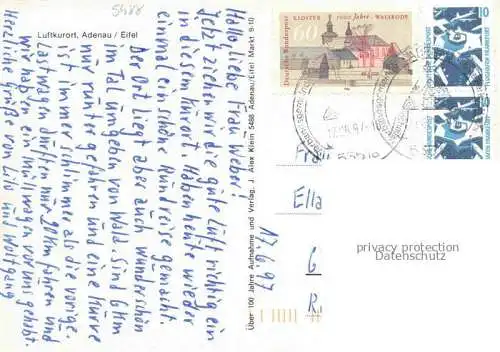 5488
Luftkurort, Adenau / Eifel
Hallo liebe Frau Weber!
Jetzt ziehen wir die gute Luft richtig ein
in diesem Kurort. Haben heute wieder
einmal eine schöne Rundreise gemacht.
Der Ort liegt aber auch wunderschön
im Tal umgeben von Wald. Sind 6 km
nur runter gefahren und eine Kurve
ist immer schlimmer als die vorige.
Lastwagen dürfen nur 20 km fahren und
wir haben ein Müllwagen vor uns gehabt.
Herzliche Grüße von Lilo und Wolfgang
Über 100 Jahre Aufnahme und Verlag. J. Alex Klein 5488 Adenau/Eifel Markt 9-10
KLOSTER 1000 JAHRE WALSRODE
Deutsche Bundespost
60
10
10
Frau
Ella
17.6.97
privacy protection
Datenschutz